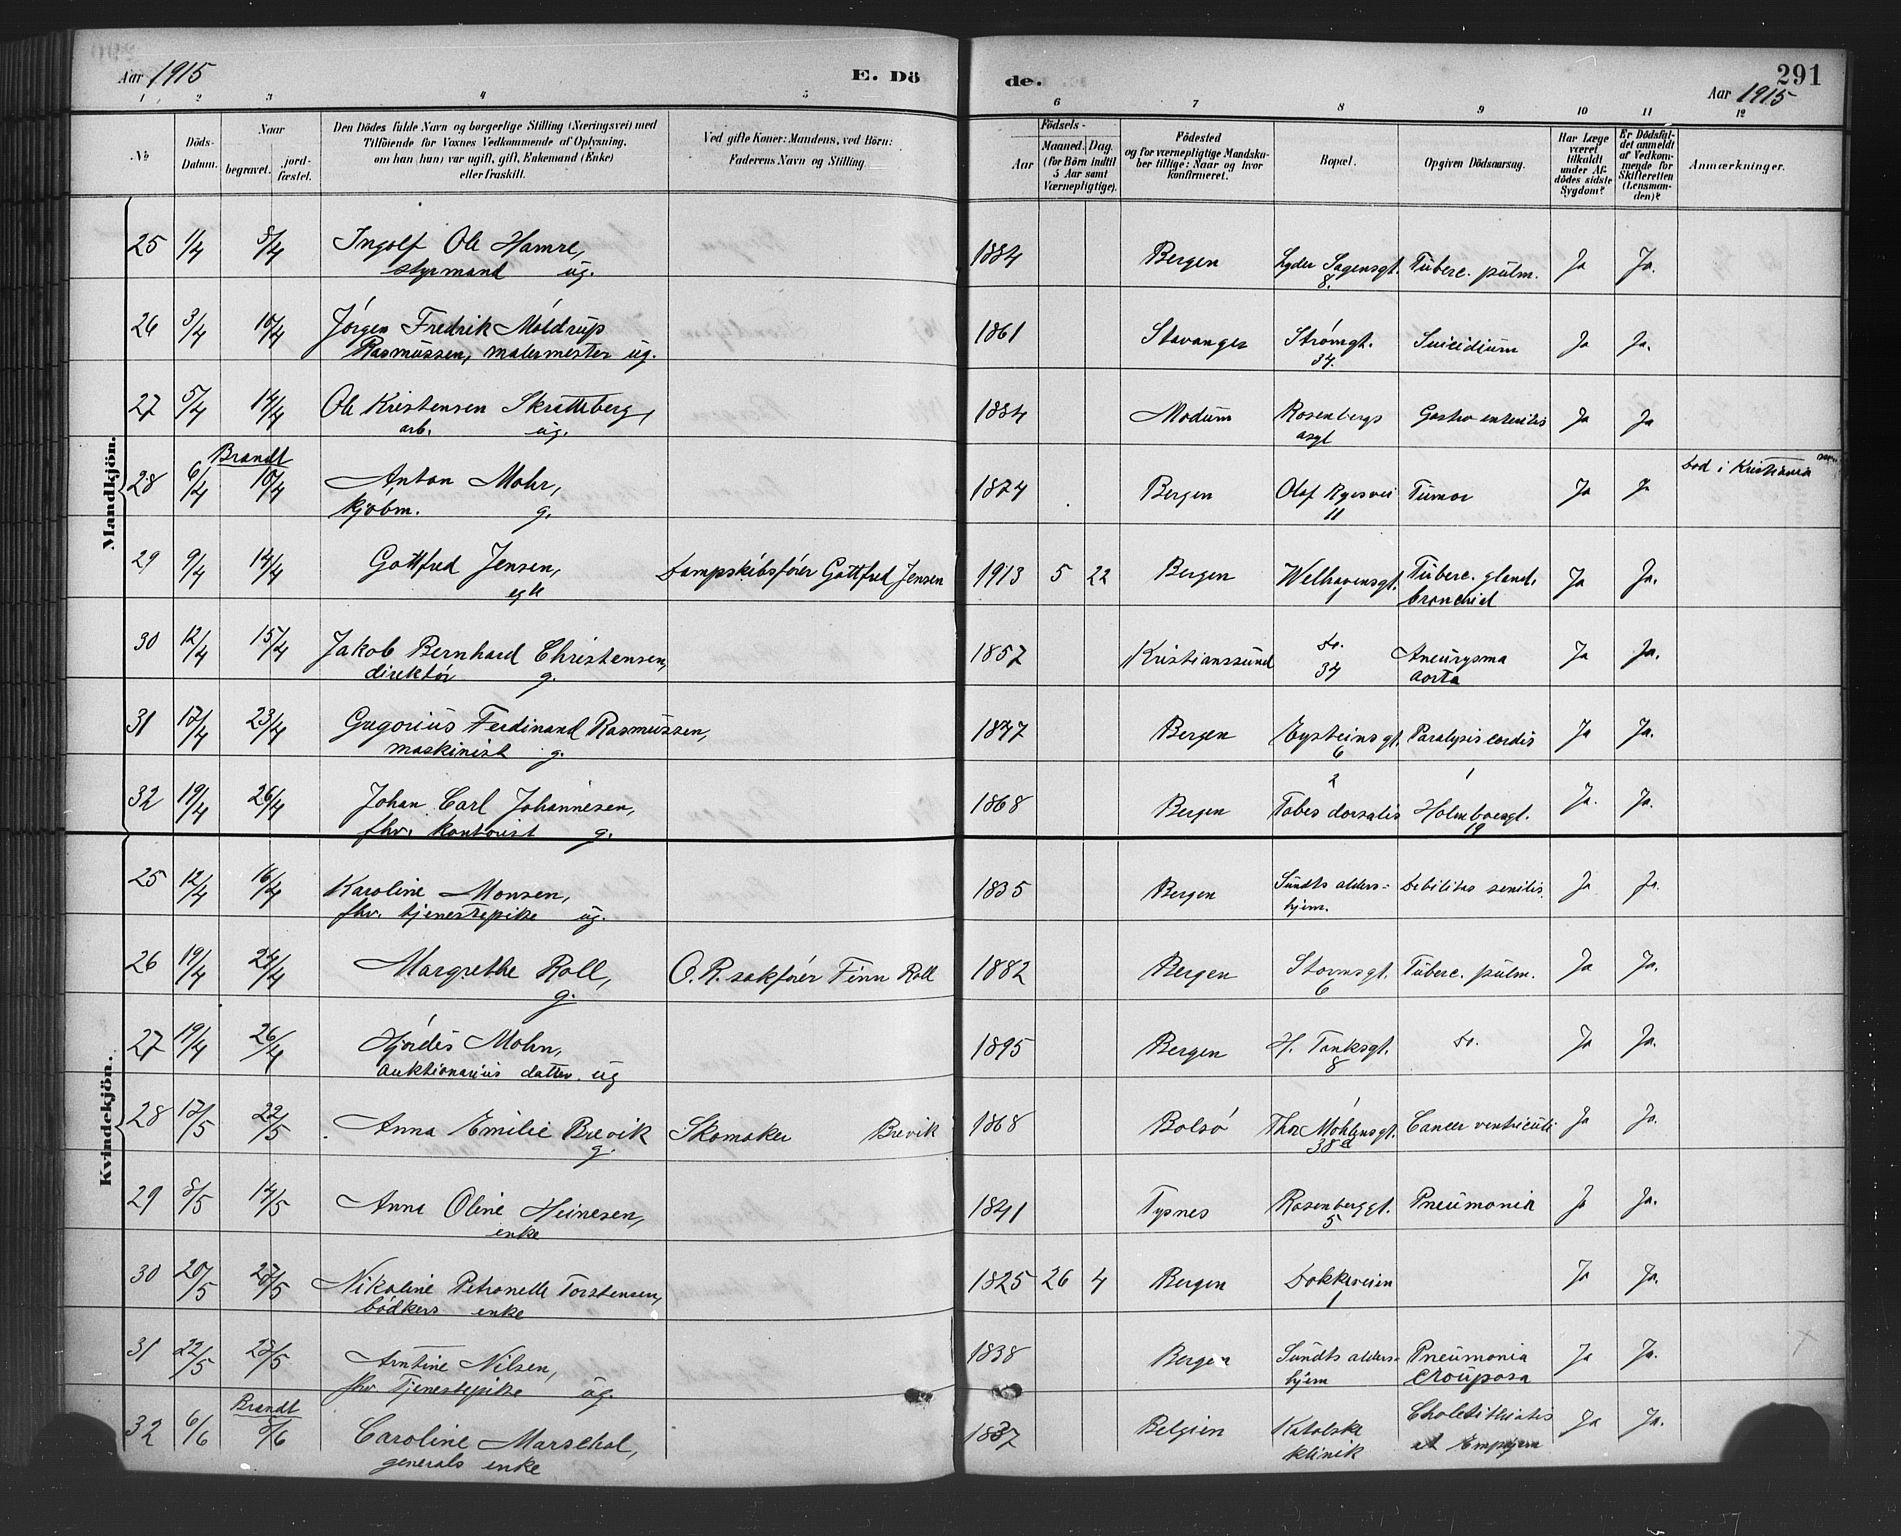 Aar 1915 E. Dö de. 291
Aar 1915
1 2 3 4 5 6 7 8 9 10 11 12
No
Döds-Datum.
Naar
begravet.
jord-fæstet.
Den Dödes fulde Navn og borgerlige Stilling (Næringsvei) med
Tilföiende for Voxnes Vedkommende af Oplysning,
om han (hun) var ugift, gift, Enkemand (Enke)
eller fraskilt.
Ved gifte Koner: Mandens, ved Börn:
Faderens Navn og Stilling.
Födsels-
Aar
Maaned. Dag.
(for Börn indtil
5 Aar samt
Værnepligtige).
Födested
og for værnepligtige Mandska-
ber tillige: Naar og hvor
konfirmeret.
Bopæl.
Opgiven Dödsaarsag.
Har Læge
været
tilkaldt
under Af-
dödes sidste
Sygdom?
Er Dödsfal-
det anmeldt
af Vedkom-
mende for
Skifteretten
(Lensman-
den)?
Anmærkninger.
Mandkjön.
25 1/4 8/4 Ingolf Ole Hamre, 1884 Bergen Lyder Sagensgt. Tuberc. pulm. Ja Ja.
styrmand ug. 8.
26 3/4 10/4 Jörgen Fredrik Moldrup 1861 Stavanger Strömgt. Suicidium Ja Ja.
Rasmussen, malermester ug. 34.
27 5/4 14/4 Ole Kristensen Skratteberg, 1884 Modum Rosenbergs Gastro enteritis Ja Ja
arb. ug. asgt
Brandt
28 6/4 10/4 Anton Mohr, 1874 Bergen Olaf Ryesvei Tumor Ja Ja Död i Kristiania
kjøbm. g. 11
29 9/4 14/4 Gottfred Jensen, Dampskibsförer Gottfred Jensen 1913 5 22 Bergen Welhavensgt. Tuberc. gland. Ja Ja.
egte 1 bronchid
30 12/4 15/4 Jakob Bernhard Christensen, 1857 Kristianssund do. Aneurysma Ja Ja.
direktör g. 34 aorta
31 17/4 23/4 Gregorius Ferdinand Rasmussen, 1877 Bergen Eysteinsgt. Paralysis cordis Ja Ja.
maskinist g. 6
32 19/4 26/4 Johan Carl Johannesen, 1868 Bergen 2 Tabes dorsalis 1 Holmboesgt. Ja. Ja.
fhv. kontorist g. 19
Kvindekjön.
25 12/4 16/4 Karoline Monsen, 1835 Bergen Sundts alders- Debilitas senilis. Ja Ja.
fhv. tjenestepike ug. hjem.
26 19/4 24/4 Margrethe Roll, O. R. sakförer Finn Roll 1882 Bergen Stormsgt. Tuberc. pulm. Ja Ja.
g. 6
27 19/4 26/4 Hjördis Mohn, 1895 Bergen H. Tanksgt. do. Ja Ja.
Auktionarius datter. ug 8
28 17/5 22/5 Anna Emilie Brevik Skomaker Brevik 1868 Bolsö Thor Möhlensgt. Cancer ventriculi Ja Ja.
g. 38
29 8/5 14/5 Anna Oline Heinesen, 1841 Tysnes Rosenberggt. Pneumonia Ja Ja.
enke 5
30 20/5 /5 Nikoline Petronelle Torstensen, 1825 26 4 Bergen Dokkeveien Ja Ja.
bödkers enke 1
31 22/5 /5 Arntine Nilsen, 1838 Bergen Sundts alders- Pneumonia Ja Ja.
fhv Tjenestepike ug. hjem crouposa
Brandt
32 6/6 /6 Caroline Marschal, 1837 Belgien Katolske Cholelithiatis Ja Ja.
generals enke klinik et Empyem